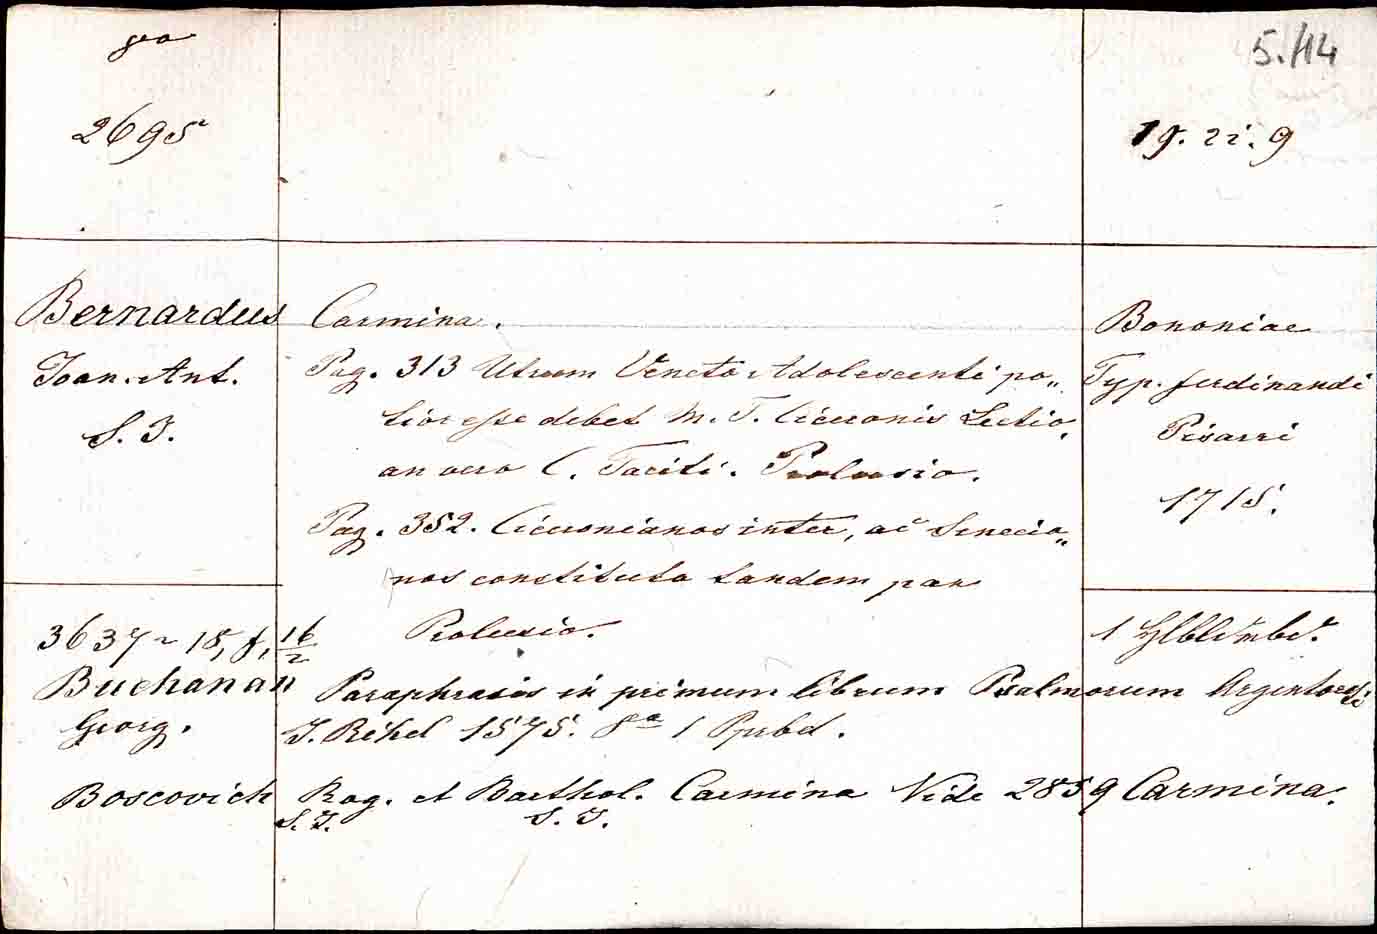 8va
5./14
2695
19. 22. 9
Bernardus Carmina. Bononiae
Joan. Ant. Pag. 313 Utrum Veneto Adolescenti po„ Typ. Ferdinandi
S. J. tior esse debet M. T. Ciceronis Lectio, Pisarri
an vero C. Taciti. Prolusio.
1715.
Pag. 352. Ciceronianos inter, ac Senecia„
nos constituta tandem pax
Prolusio.
3637 ~ 18, f, 16/2 1 Hlbldrnbd.
Buchanan Paraphrasis in primum librum Psalmorum Argentorati
Georg. J. Rihel 1575. 8a 1 Pprbd.
Boscovich Rog. et Barthol. Carmina Vide 2859 Carmina.
S. J. S. J.